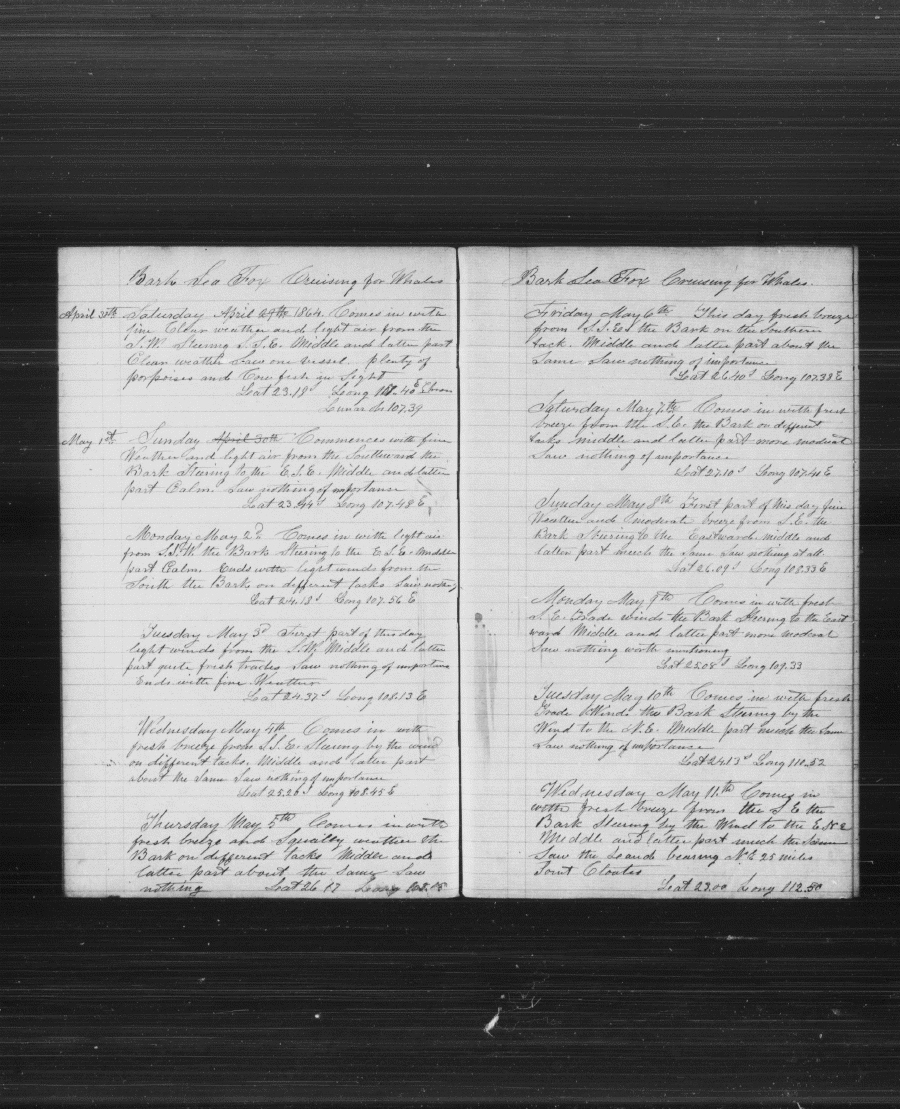 Bark Sea Fox Cruising for Whales
April 30th Saturday April 29th 1864. Comes in with
fine Clear weather and light air from the
S.W. Steering S.S.E. Middle and latter part
Clear weather Saw one vessel. plenty of
porpoises and Cow fish in Sight
Lat 23.18 S Long 107.40 E Chron
Lunar do 107.39
May 1st Sunday April 30th Commences with fine
Weather and light air from the Southward the
Bark Steering to the E.S.E. Middle and latter
part Calm. Saw nothing of importance
Lat 23.44 S Long 107.48 E
Monday May 2d Comes in with light air
from S.S.W. the Bark Steering to the E.S.E. Middle
part Calm. Ends with light winds from the
South the Bark on different tacks Saw nothing
Lat 24.18 S Long 107.56 E
Tuesday May 3d First part of this day
light winds from the S.W. Middle and latter
part quite fresh trades Saw nothing of importance
Ends with fine Weather
Lat 24.37 S Long 108.13 E
Wednesday May 4th Comes in with
fresh breeze from S.S.E. Steering by the wind
on different tacks. Middle and latter part
about the Same Saw nothing of importance
Lat 25.26 S Long 108.45 E
Thursday May 5th Comes in with
fresh breeze and Squally weather the
Bark on different tacks Middle and
latter part about the Same Saw
nothing Lat 26 17 Long 108.05
Bark Sea Fox Cruising for Whales.
Friday May 6th This day fresh breeze
from S.S.E. the Bark on the Southern
tack. Middle and latter part about the
Same Saw nothing of importance
Lat 26.40 S Long 107.38 E
Saturday May 7th Comes in with fresh
breeze from the S.E. the Bark on different
tacks middle and latter part more moderat
Saw nothing of importance
Lat 27.10 S Long 107.41 E
Sunday May 8th First part of this day fine
Weather and moderate breeze from S.E. the
Bark Steering to the Eastward. middle and
latter part much the Same Saw nothing at all
Lat 26.09 S Long 108.33 E
Monday May 9th Comes in with fresh
S.E. Trade winds the Bark Steering to the East
ward Middle and latter part more moderat
Saw nothing worth mentioning
Lat 25.08 S Long 109.33
Tuesday May 10th Comes in with fresh
Trade Winds the Bark Steering by the
Wind to the N.E. Middle part much the Same
Saw nothing of importance
Lat 24.13 S Long 110.52
Wednesday May 11th Comes in
with fresh breeze from the S E the
Bark Steering by the Wind to the E.N.E
Middle and latter part much the Same
Saw the Land bearing N.E 25 miles
Point Cloutes
Lat 23.00 Long 112.50